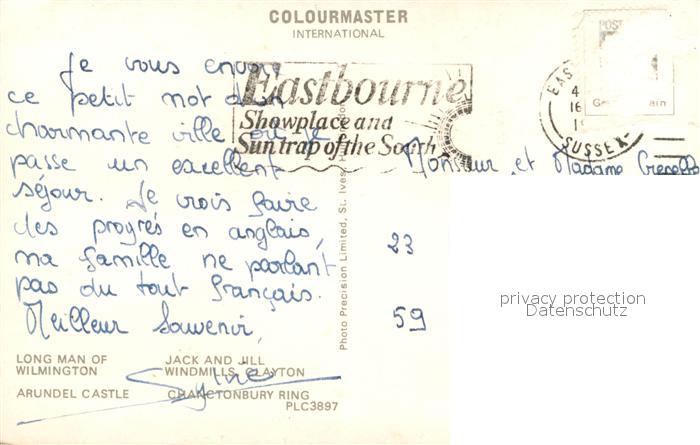 COLOURMASTER
INTERNATIONAL
Je vous envoie
ce petit mot d'un
charmante ville où je
passe un excellent
séjour. Je crois faire
des progrès en anglais,
ma famille ne parlant
pas du tout français.
Meilleur Souvenir,
Sylvie
Eastbourne
Showplace and
Suntrap of the South
SUSSEX
Monsieur et Madame
23
59
Photo Precision Limited, St. Ives,
privacy protection
Datenschutz
LONG MAN OF
WILMINGTON
JACK AND JILL
WINDMILLS, CLAYTON
ARUNDEL CASTLE
CHANCTONBURY RING
PLC3897